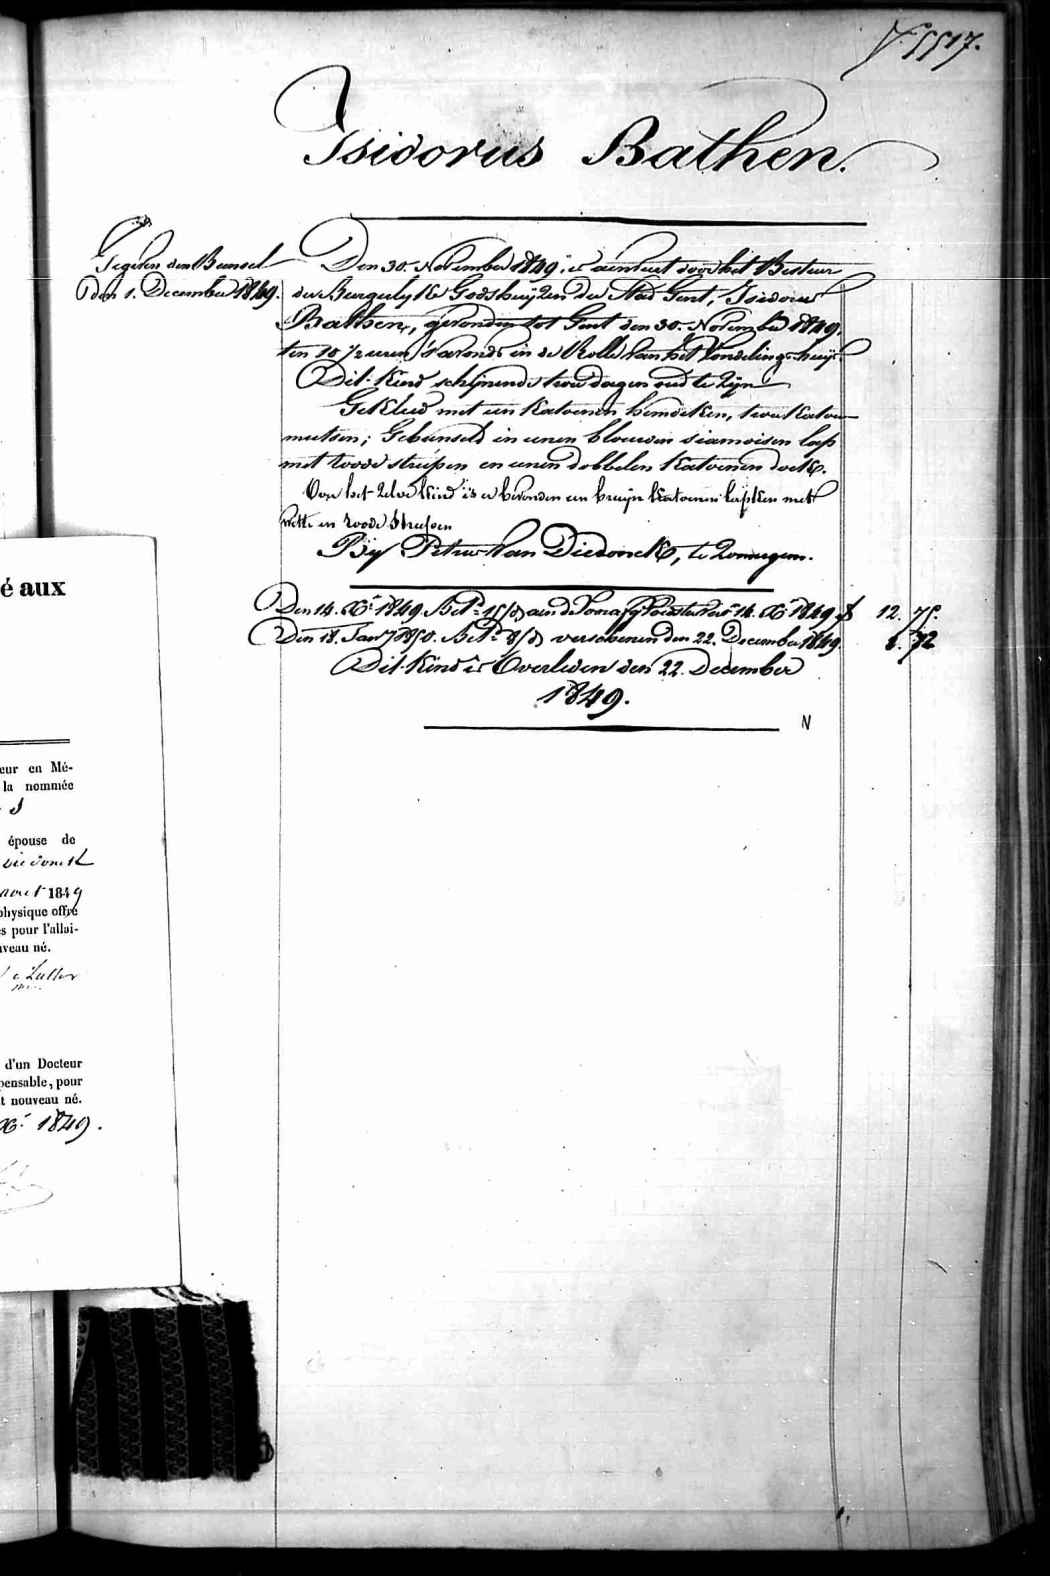 Isidorus Bathen.
Gegeven den Bunsel
den 1. December 1849.
Den 30. November 1849, is aenveert door het Bestuer
der Burgerlyke Godshuyzen der Stad Gent, Isidorus
Bathen, gevonden tot Gent den 30. November 1849,
ten 10 1/2 uren 's avonds in de Rolle van het Vondelingshuys.
Dit Kind schijnende twee dagen oud te zijn
Gekleed met een katoenen hemdeken, twee katoene
mutsen; Gebunseld in eenen blauwen siamoisen lap
met roode streepen en eenen dobbelen katoenen doek.
Op het zelve kind is er bevonden een bruyn katoenen lapken met
witte en roode streepen
Bij Petrus Van Diedonck, te Zomergem.
Den 14. Xb. 1849. Bet. aen de 14. Xb. 1849 12. 75.
Den 18. Jany 1850. Bet. verschenen den 22. December 1849. 1. 72
Dit Kind is Overleden den 22. December
1849.
N
é aux
eur en Mé-
la nommée
épouse de
1849
physique offre
s pour l'allai-
uveau né.
d'un Docteur
pensable, pour
t nouveau né.
Xb. 1849.